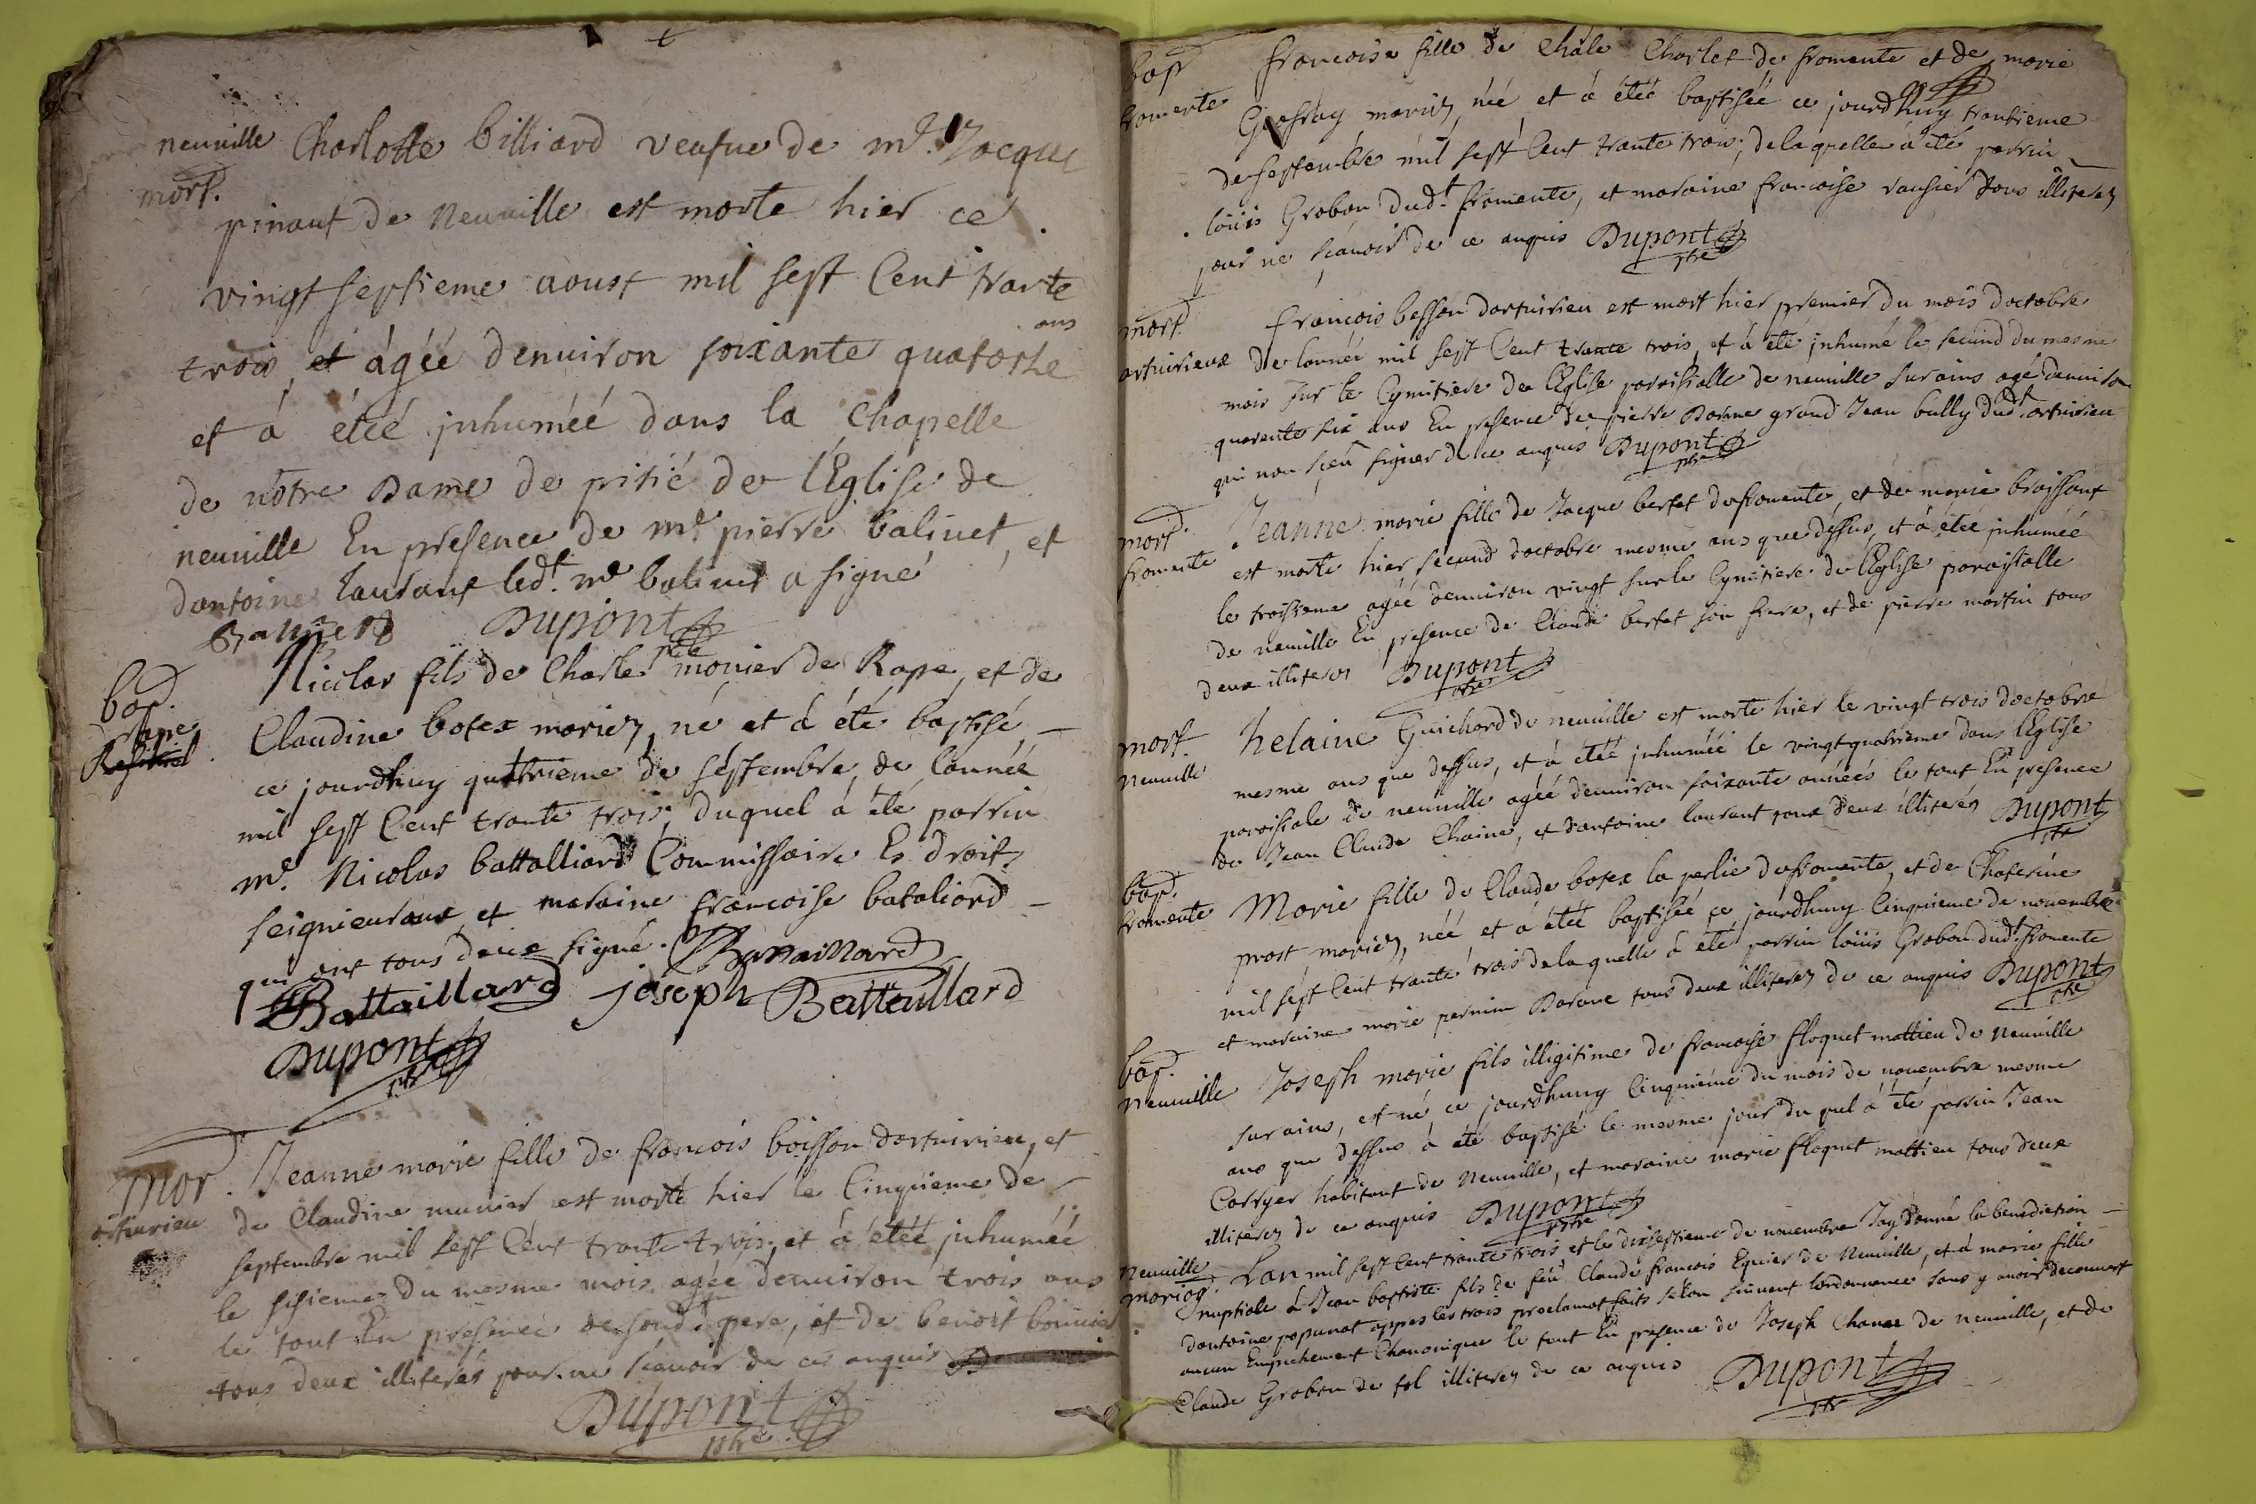 neuuille Charlotte billiard veafue de mr. Jacque
mort. pinaut de Neuuille est morte hier ce
vingt septieme aoust mil sept Cent trante
trois, et ágéé denuiron soixante quatorze ans
et á étéé jnhuméé dans la Chapelle
de nôtre Dame de pitié de lEglise de
neuuille En presence de mr. pierre balinet, et
dantoine laurant ledt. mr balinet a signé
Dupont ptre
bap. Nicolas fils de Charle monier de Rape, et de
rape Claudine botex mariez, né et á été baptisé
ce jourdhuy quatrieme de séptembre, de lannéé
mil sept Cent trante trois; duquel á été parrin
mr. Nicolas battalliard Commissaire Es droit
seignieuraux, et maraine francoise bataliard
qui ont tous deux signé. Battaillard
Battaillard joseph Battaillard
Dupont ptre
mor. Jeanne marie fille de francois boisson dartuirieu, et
artuirieu de Claudine munier est morte hier le Cinquieme de
septembre mil sept Cent trante trois, et á étéé jnhuméé
le sisieme du mesme mois agéé denuiron trois ans
le tout En presence de sondt. pere, et de benoit
tous deux illiterés pour ne scauoir de ce anquis
Dupont ptre
bap francoise fille de Châle Charlet de fromente et de marie
fromente mariez, néé et á étéé baptiséé ce jourdhuy trantieme
de septembre mil sept Cent trante trois; de laquelle á été parrin
loüis Grobon dudt. fromente, et maraine francoise tous illiterez
pour ne scauoir de ce anquis Dupont ptre
mort. francois besson dartuirieu est mort hier premier du mois doctobre
artuirieux de lannéé mil sept Cent trante trois, et á été jnhumé le second du mesme
mois sur le Cymitiere de lEglise paroissialle de neuuille surains agé denuiron
quarente six ans En presence de pierre Darme grand Jean bully dudt artuirieu
qui non sceu signer de ce anquis Dupont ptre
mort Jeanne marie fille de Jacque bertet de fromente, et de marie broissant
fromente est morte hier second doctobre mesme ans que dessus, et á étéé jnhuméé
le troisieme agéé denuiron vingt sur le Cymitiere de lEglise paroissialle
de neuuille En presence de Claude bertet son frere, et de pierre martin tous
deux illiterez Dupont ptre
mort. helaine Guichard de neuuille est morte hier le vingt trois doctobre
Neuuille mesme ans que dessus, et á étéé jnhuméé le vingtquatrieme dans lEglise
paroissiale de neuuille agéé denuiron soixante annéés le tout En presence
de Jean Claude Chaine, et dantoine laurant tous deux illiterez Dupont ptre
bap. Marie fille de Claude botex la perlie de fromente, et de Chaterine
fromente prost mariez, néé et á étéé baptiséé ce jourdhuy Cinquieme de nouembre
mil sept Cent trante trois de laquelle á été parrin loüis Grobon dudt. fromente
et maraine marie pernin Darme tous deux illiterez de ce anquis Dupont ptre
bap. Joseph marie fils illigitime de francoise floquet mattieu de Neuuille
Neuuille surains, est né ce jourdhuy Cinquiéme du mois de nouembre mesme
ans que dessus á été baptisé le mesme jour du quel á été parrin Jean
Carryer habitant de Neuuille, et maraine marie floquet mattieu tous deux
illiterez de ce anquis Dupont ptre
Neuuille Lan mil sept Cent trante trois et le dixseptieme de nouembre Jay donné la benediction
mariag. nuptiale á Jean baptiste fils de feu Claude francois Equier de Neuuille, et á marie fille
dantoine popunat appres les trois proclamat faits selon suiuent lordonnance sans y auoir decouuert
aucun Empechement Chanonique le tout En presence de Joseph Chanel de neuuille, et de
Claude Grobon de fol illiterez de ce anquis Dupont ptre